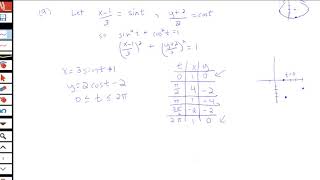 (9) Let (x-1)/3 = sint, (y+2)/2 = cost
so sin²t + cos²t = 1
(x-1)²/3 + (y+2)²/2 = 1
x = 3sint + 1
y = 2cost - 2
0 ≤ t ≤ 2π
t x y
0 1 0
π/2 4 -2
π 1 -4
3π/2 -2 -2
2π 1 0